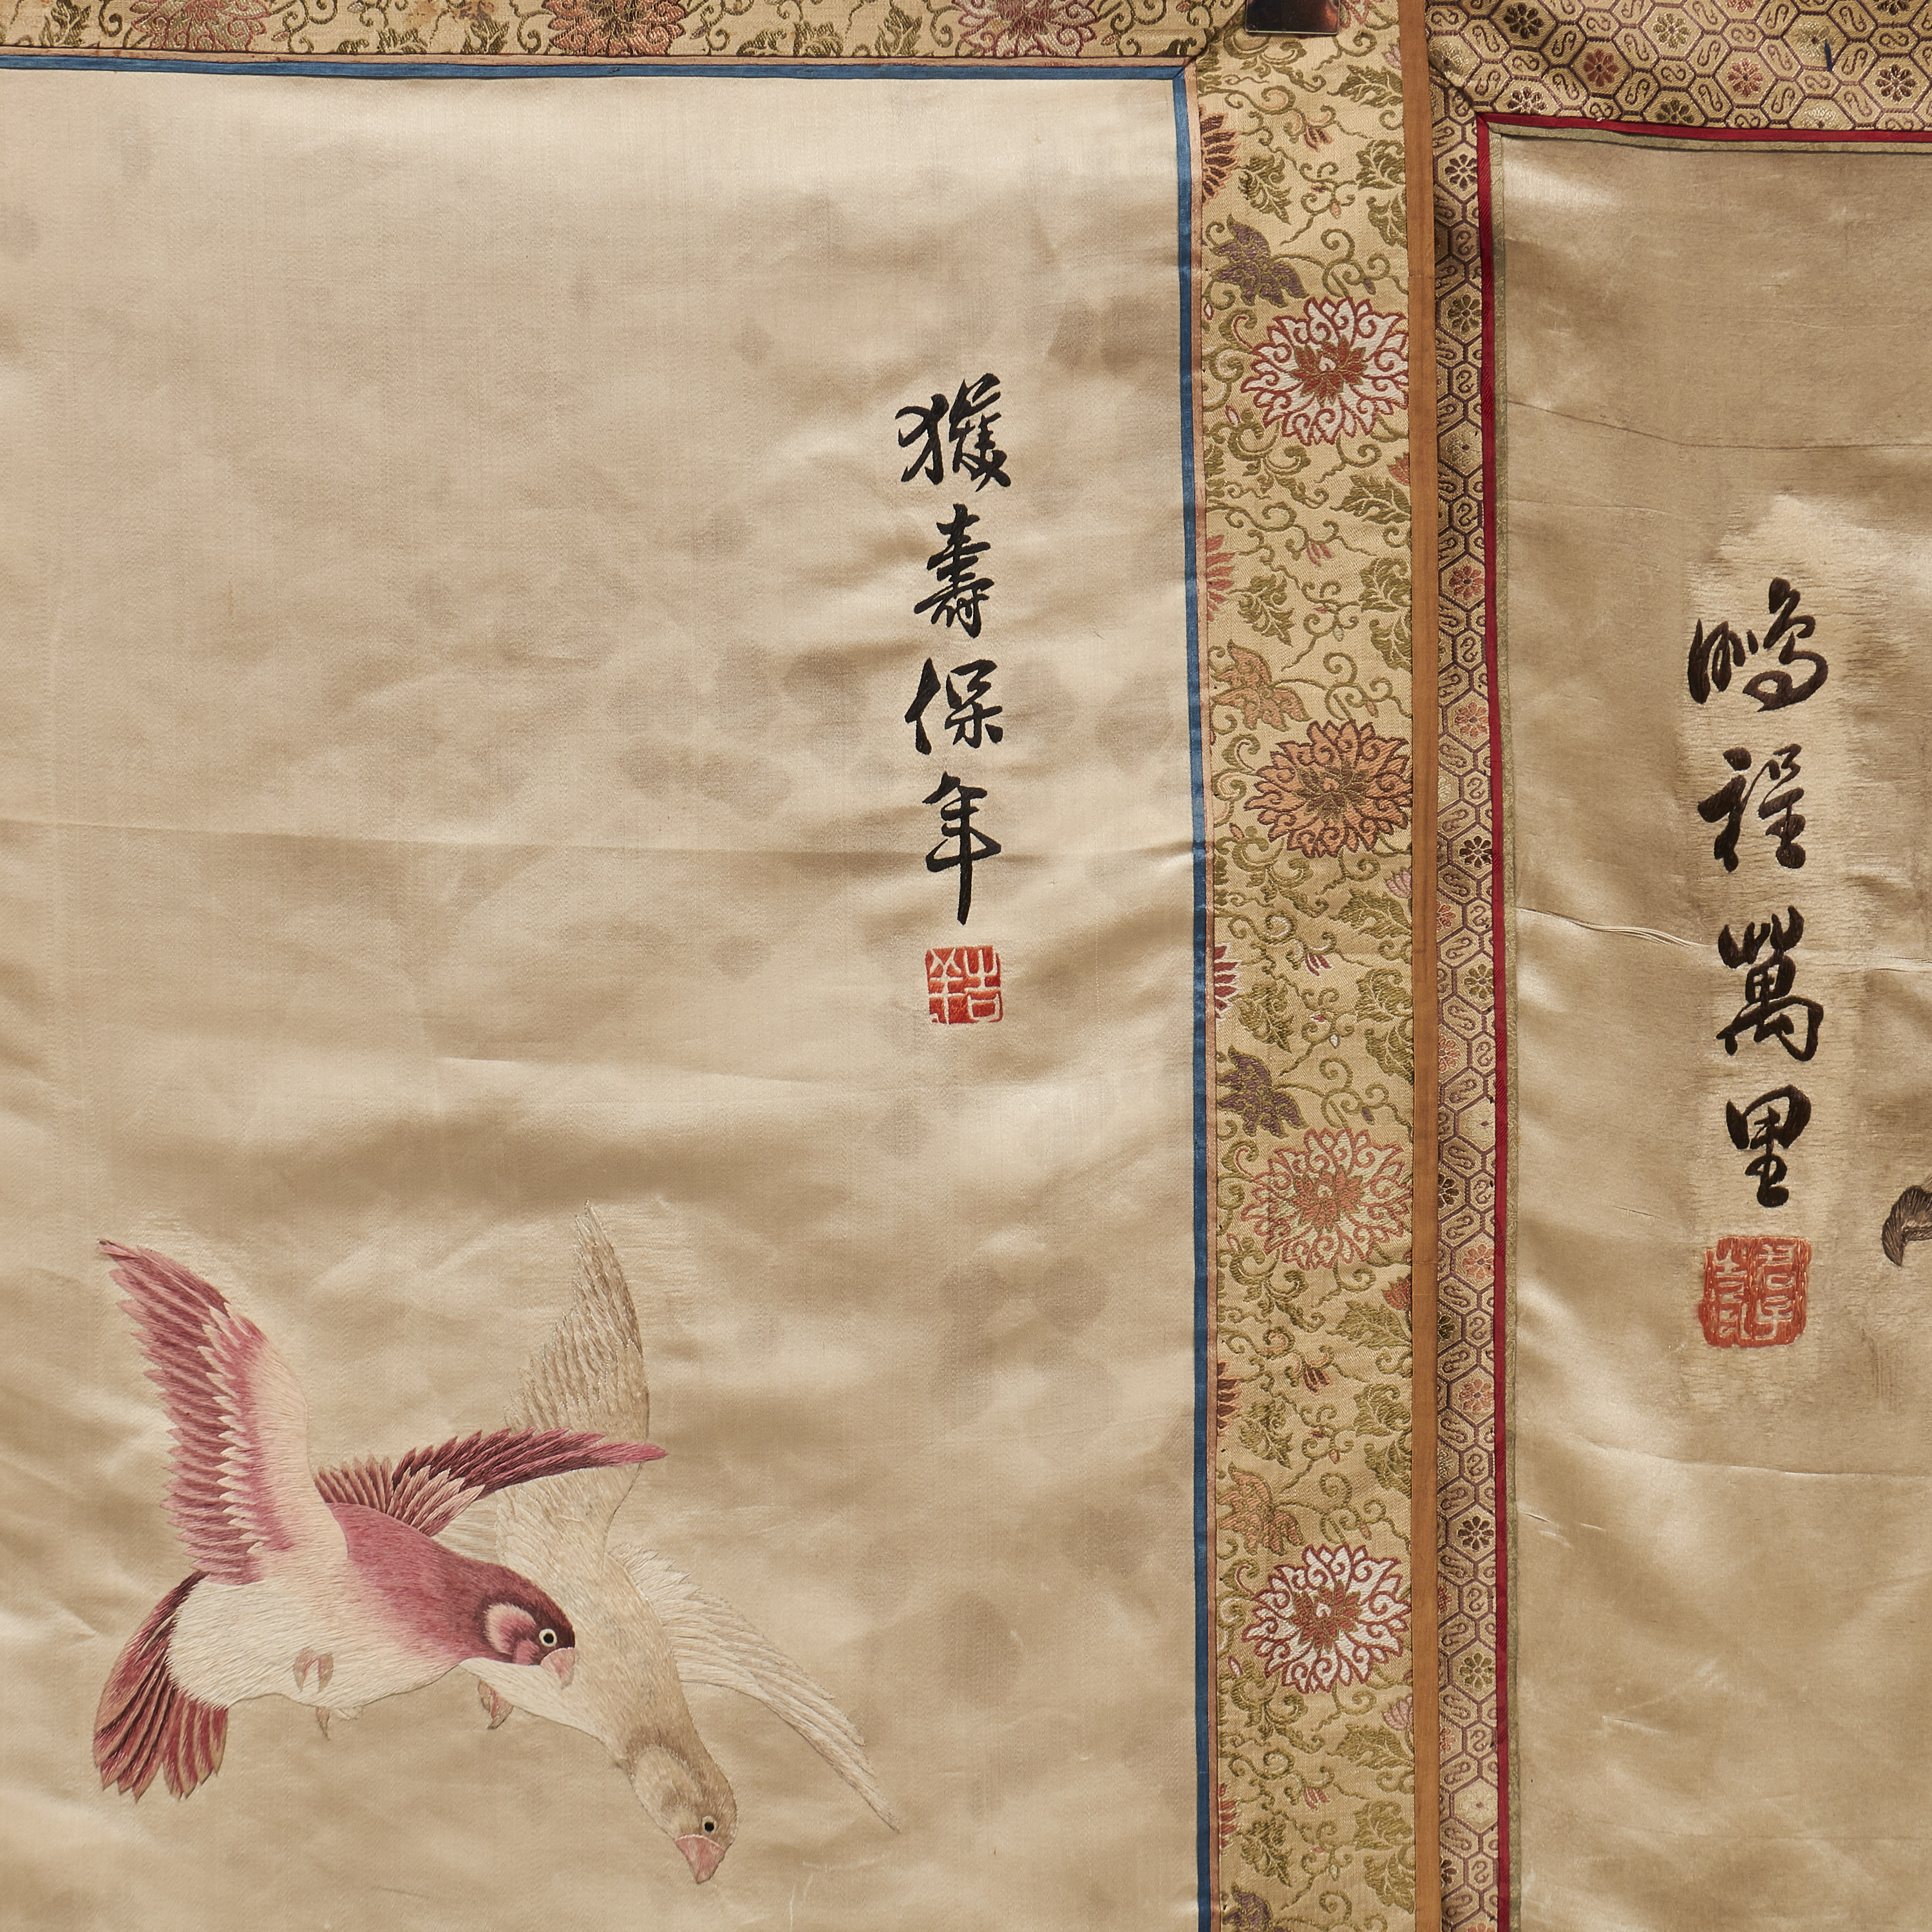 獲壽保年
鵬程萬里